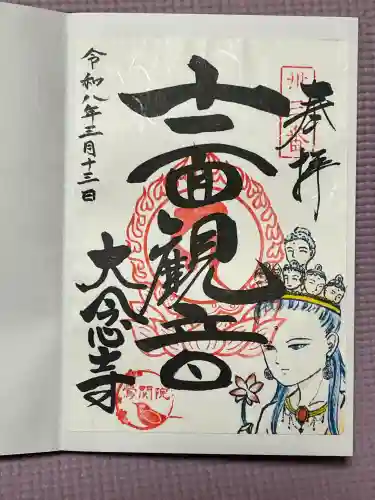 奉拝
十一面観音
大念寺
令和八年三月十三日